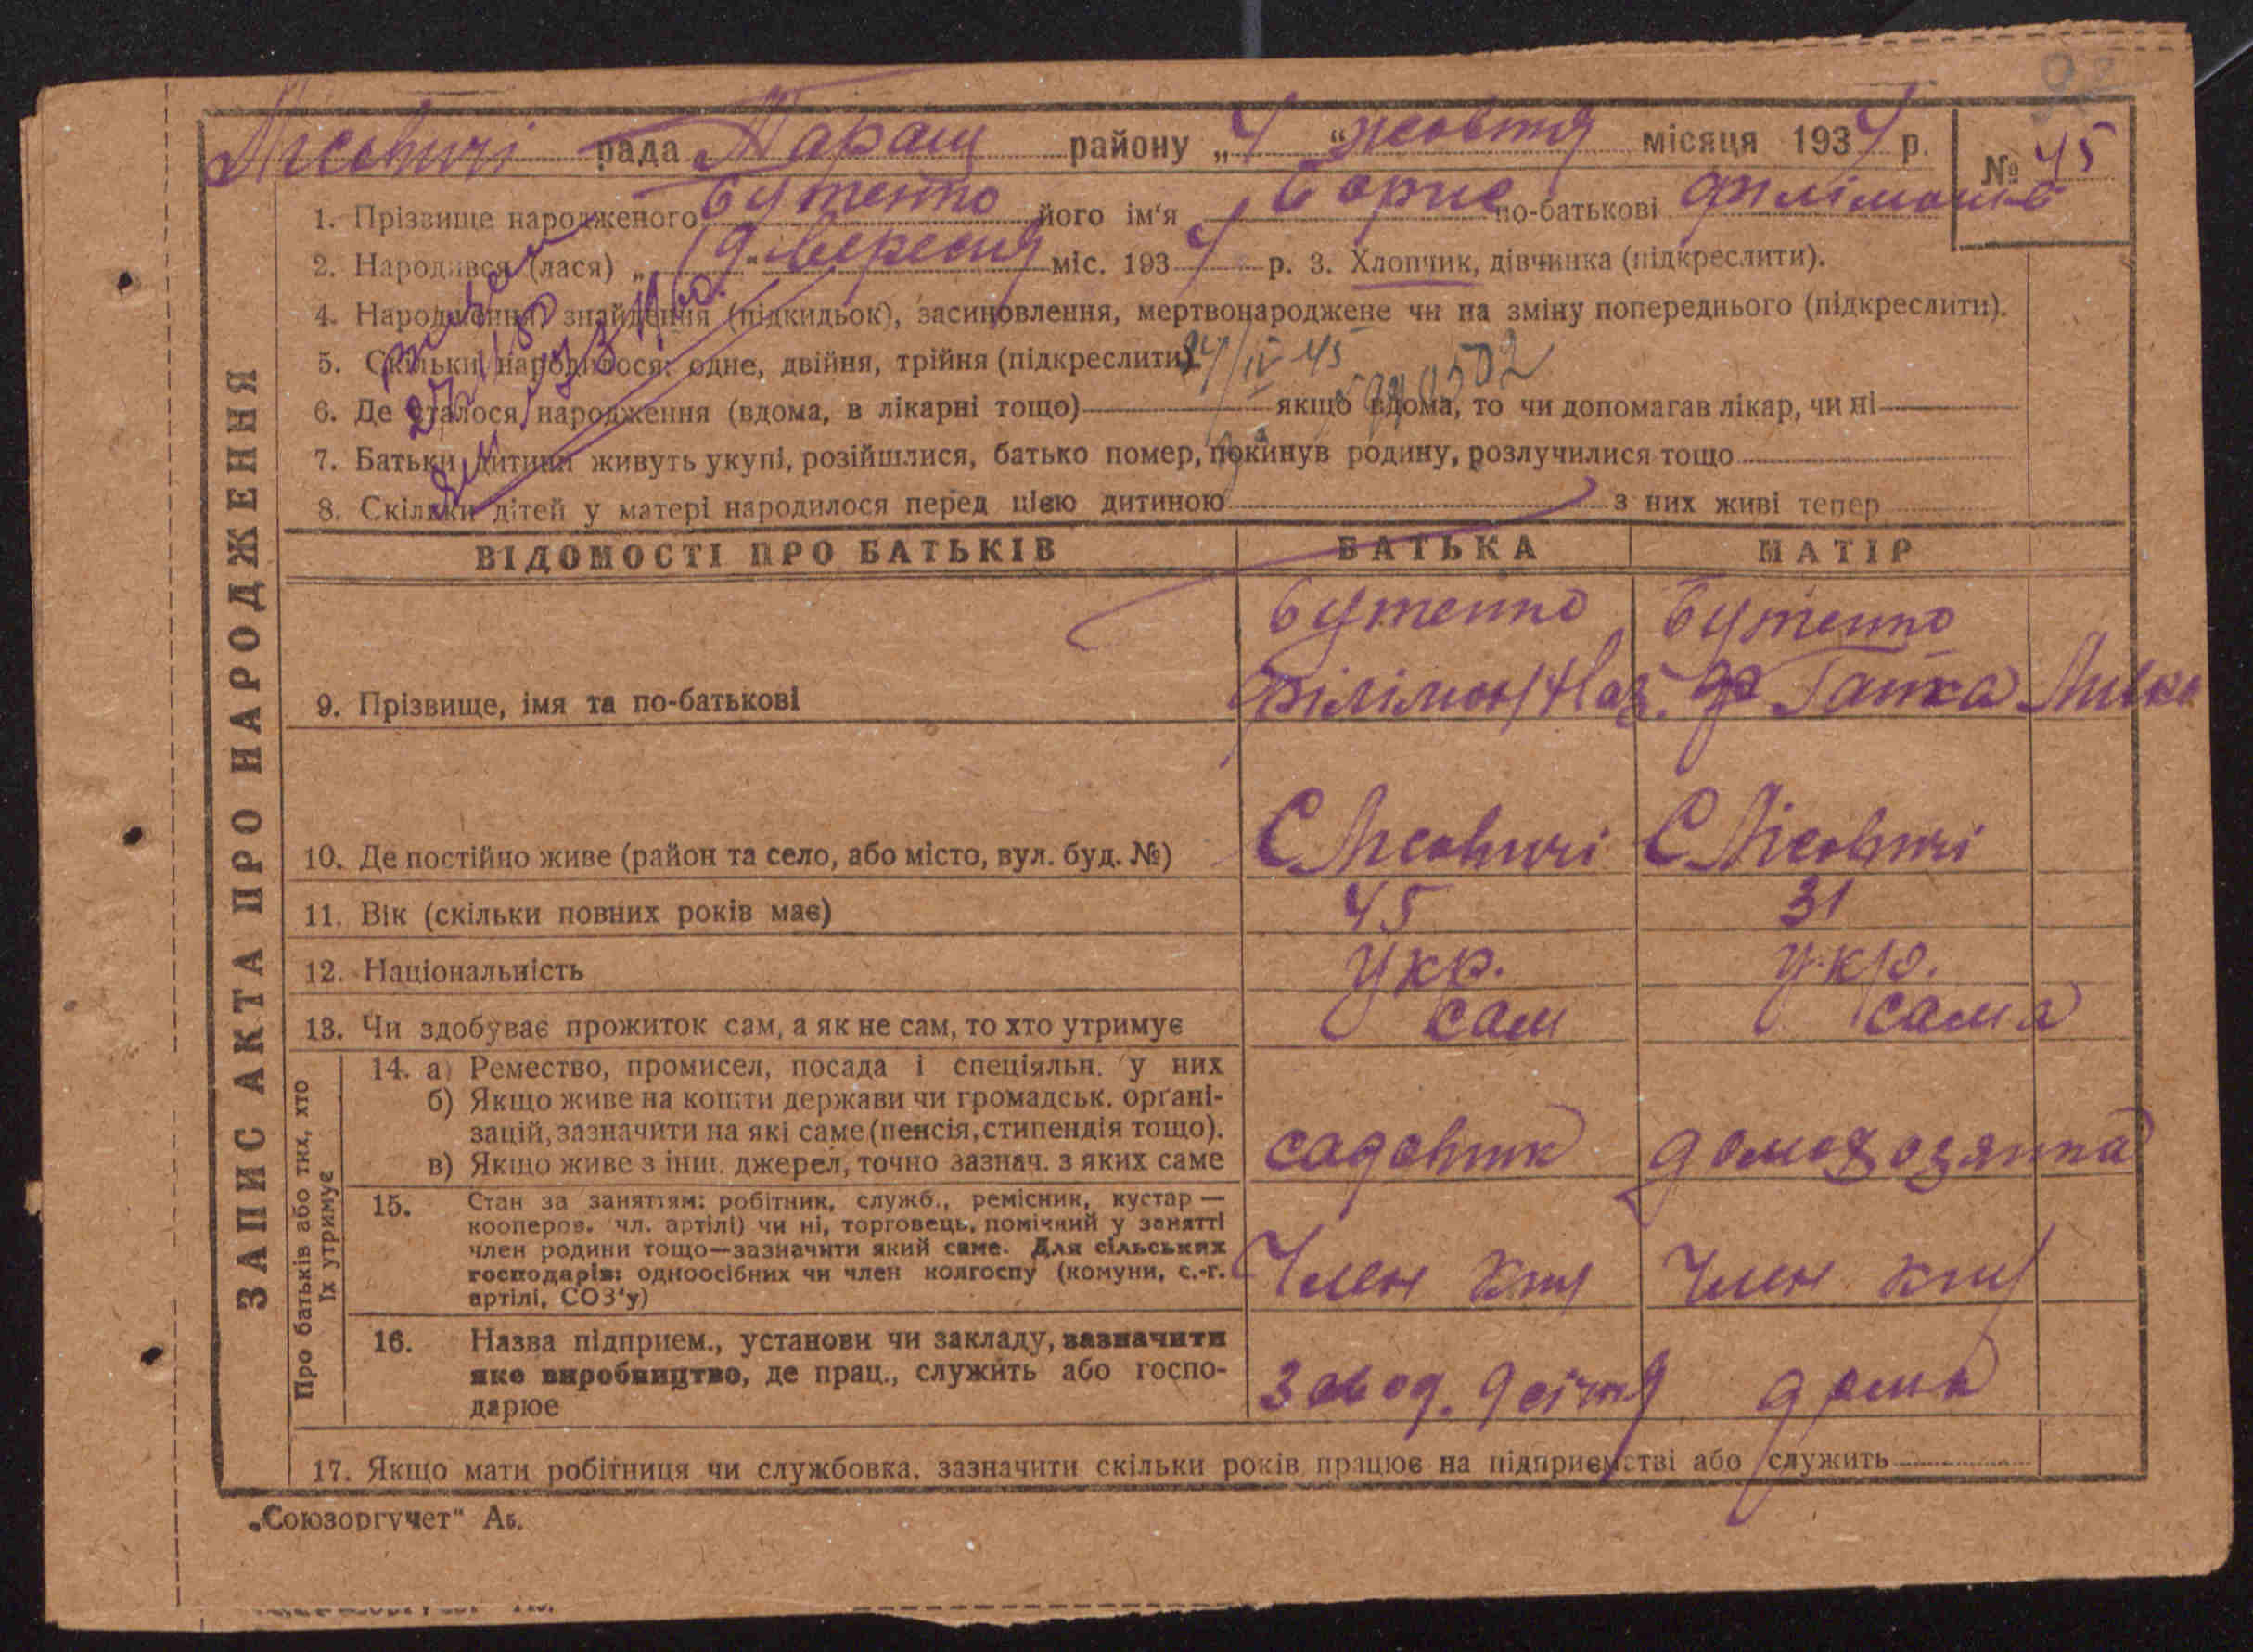 92
Лісовичі рада Таращ району „4“ жовтня місяця 1934 р. № 45
1. Прізвище народженого Бутенко його ім'я Борис по-батькові Філімонів
2. Народився (лася) „19“ вересня міс. 1934 р. 3. Хлопчик, дівчинка (підкреслити).
4. Народження, знайдення (підкидьок), засиновлення, мертвонароджене чи на зміну попереднього (підкреслити).
5. Скільки народилося: одне, двійня, трійня (підкреслити). 24/IV 45
6. Де сталося народження (вдома, в лікарні тощо) якщо вдома, то чи допомагав лікар, чи ні
7. Батьки дитини живуть укупі, розійшлися, батько помер, покинув родину, розлучилися тощо
8. Скільки дітей у матері народилося перед цією дитиною з них живі тепер
ЗАПИС АКТА ПРО НАРОДЖЕННЯ
ВІДОМОСТІ ПРО БАТЬКІВ БАТЬКА МАТІР
Бутенко Бутенко
9. Прізвище, імя та по-батькові Філімон Наз. Ганка
10. Де постійно живе (район та село, або місто, вул. буд. №) С Лісовичі С Лісовичі
11. Вік (скільки повних років має) 45 31
12. Національність Укр. Укр.
13. Чи здобуває прожиток сам, а як не сам, то хто утримує сам сама
Про батьків або тих, хто їх утримує
14. а) Ремество, промисел, посада і спеціяльн. у них
б) Якщо живе на кошти держави чи громадськ. орґані-
зацій, зазначити на які саме (пенсія, стипендія тощо).
в) Якщо живе з інш. джерел, точно зазнач. з яких саме садовник домохозяйка
15. Стан за заняттям: робітник, служб., ремісник, кустар —
кооперов. чл. артілі) чи ні, торговець, помічний у занятті
член родини тощо—зазначити який саме. Для сільських
господарів: одноосібних чи член колгоспу (комуни, с.-г.
артілі, СОЗ'у) Член кгу Член кгу
16. Назва підприєм., установи чи закладу, зазначити
яке виробництво, де прац., служить або госпо-
дарює завод. дома
17. Якщо мати робітниця чи службовка, зазначити скільки років працює на підприємстві або служить
„Союзоргучет“ Аб.